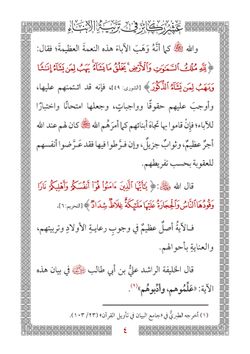 عشر ركائز في تربية الأبناء
والله ﷻ كما أنَّه وَهَبَ الآباءَ هذه النعمةَ العظيمةَ؛ فقال:
﴿لِلَّهِ مُلْكُ السَّمَٰوَٰتِ وَالْأَرْضِ يَخْلُقُ مَا يَشَاءُ يَهَبُ لِمَن يَشَاءُ إِنَٰثًا
وَيَهَبُ لِمَن يَشَاءُ الذُّكُورَ﴾ [الشورى: ٤٩]، فإنه قد ائتمنهم عليها،
وأوجبَ عليهم حقوقًا وواجباتٍ، وجعلها امتحانًا واختبارًا
للآباء؛ فإنْ قاموا بها تجاهَ أبنائهم كما أمرَهُم الله ﷻ كان لهم عند الله
أجرٌ عظيمٌ، وثوابٌ جزيلٌ، وإن فرَّطوا فيها فقد عَرَّضوا أنفسهم
للعقوبة بحسب تفريطهم.
قال الله ﷻ: ﴿يَٰأَيُّهَا الَّذِينَ ءَامَنُوا قُوا أَنفُسَكُمْ وَأَهْلِيكُمْ نَارًا
وَقُودُهَا النَّاسُ وَالْحِجَارَةُ عَلَيْهَا مَلَٰئِكَةٌ غِلَاظٌ شِدَادٌ﴾ [التحريم: ٦].
فالآيةُ أصلٌ عظيمٌ في وجوبِ رعايةِ الأولادِ وتربيتهم،
والعنايةِ بأحوالهم.
قال الخليفة الراشد عليُّ بن أبي طالب في بيان هذه
الآية: «عَلِّموهم، وأدِّبوهم»(١).
(١) أخرجه الطبريُّ في «جامع البيان في تأويل القرآن» (٢٣/ ١٠٣).
٤